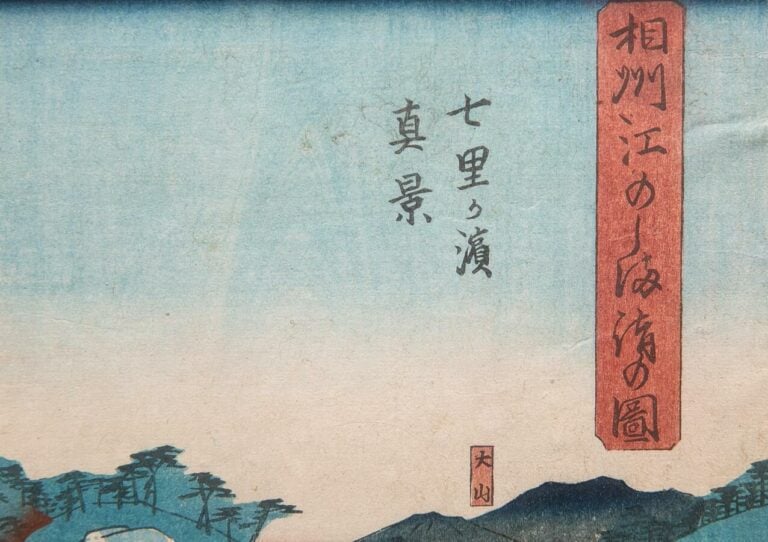 相州江のしま詣の圖
七里か濱
真景
大山